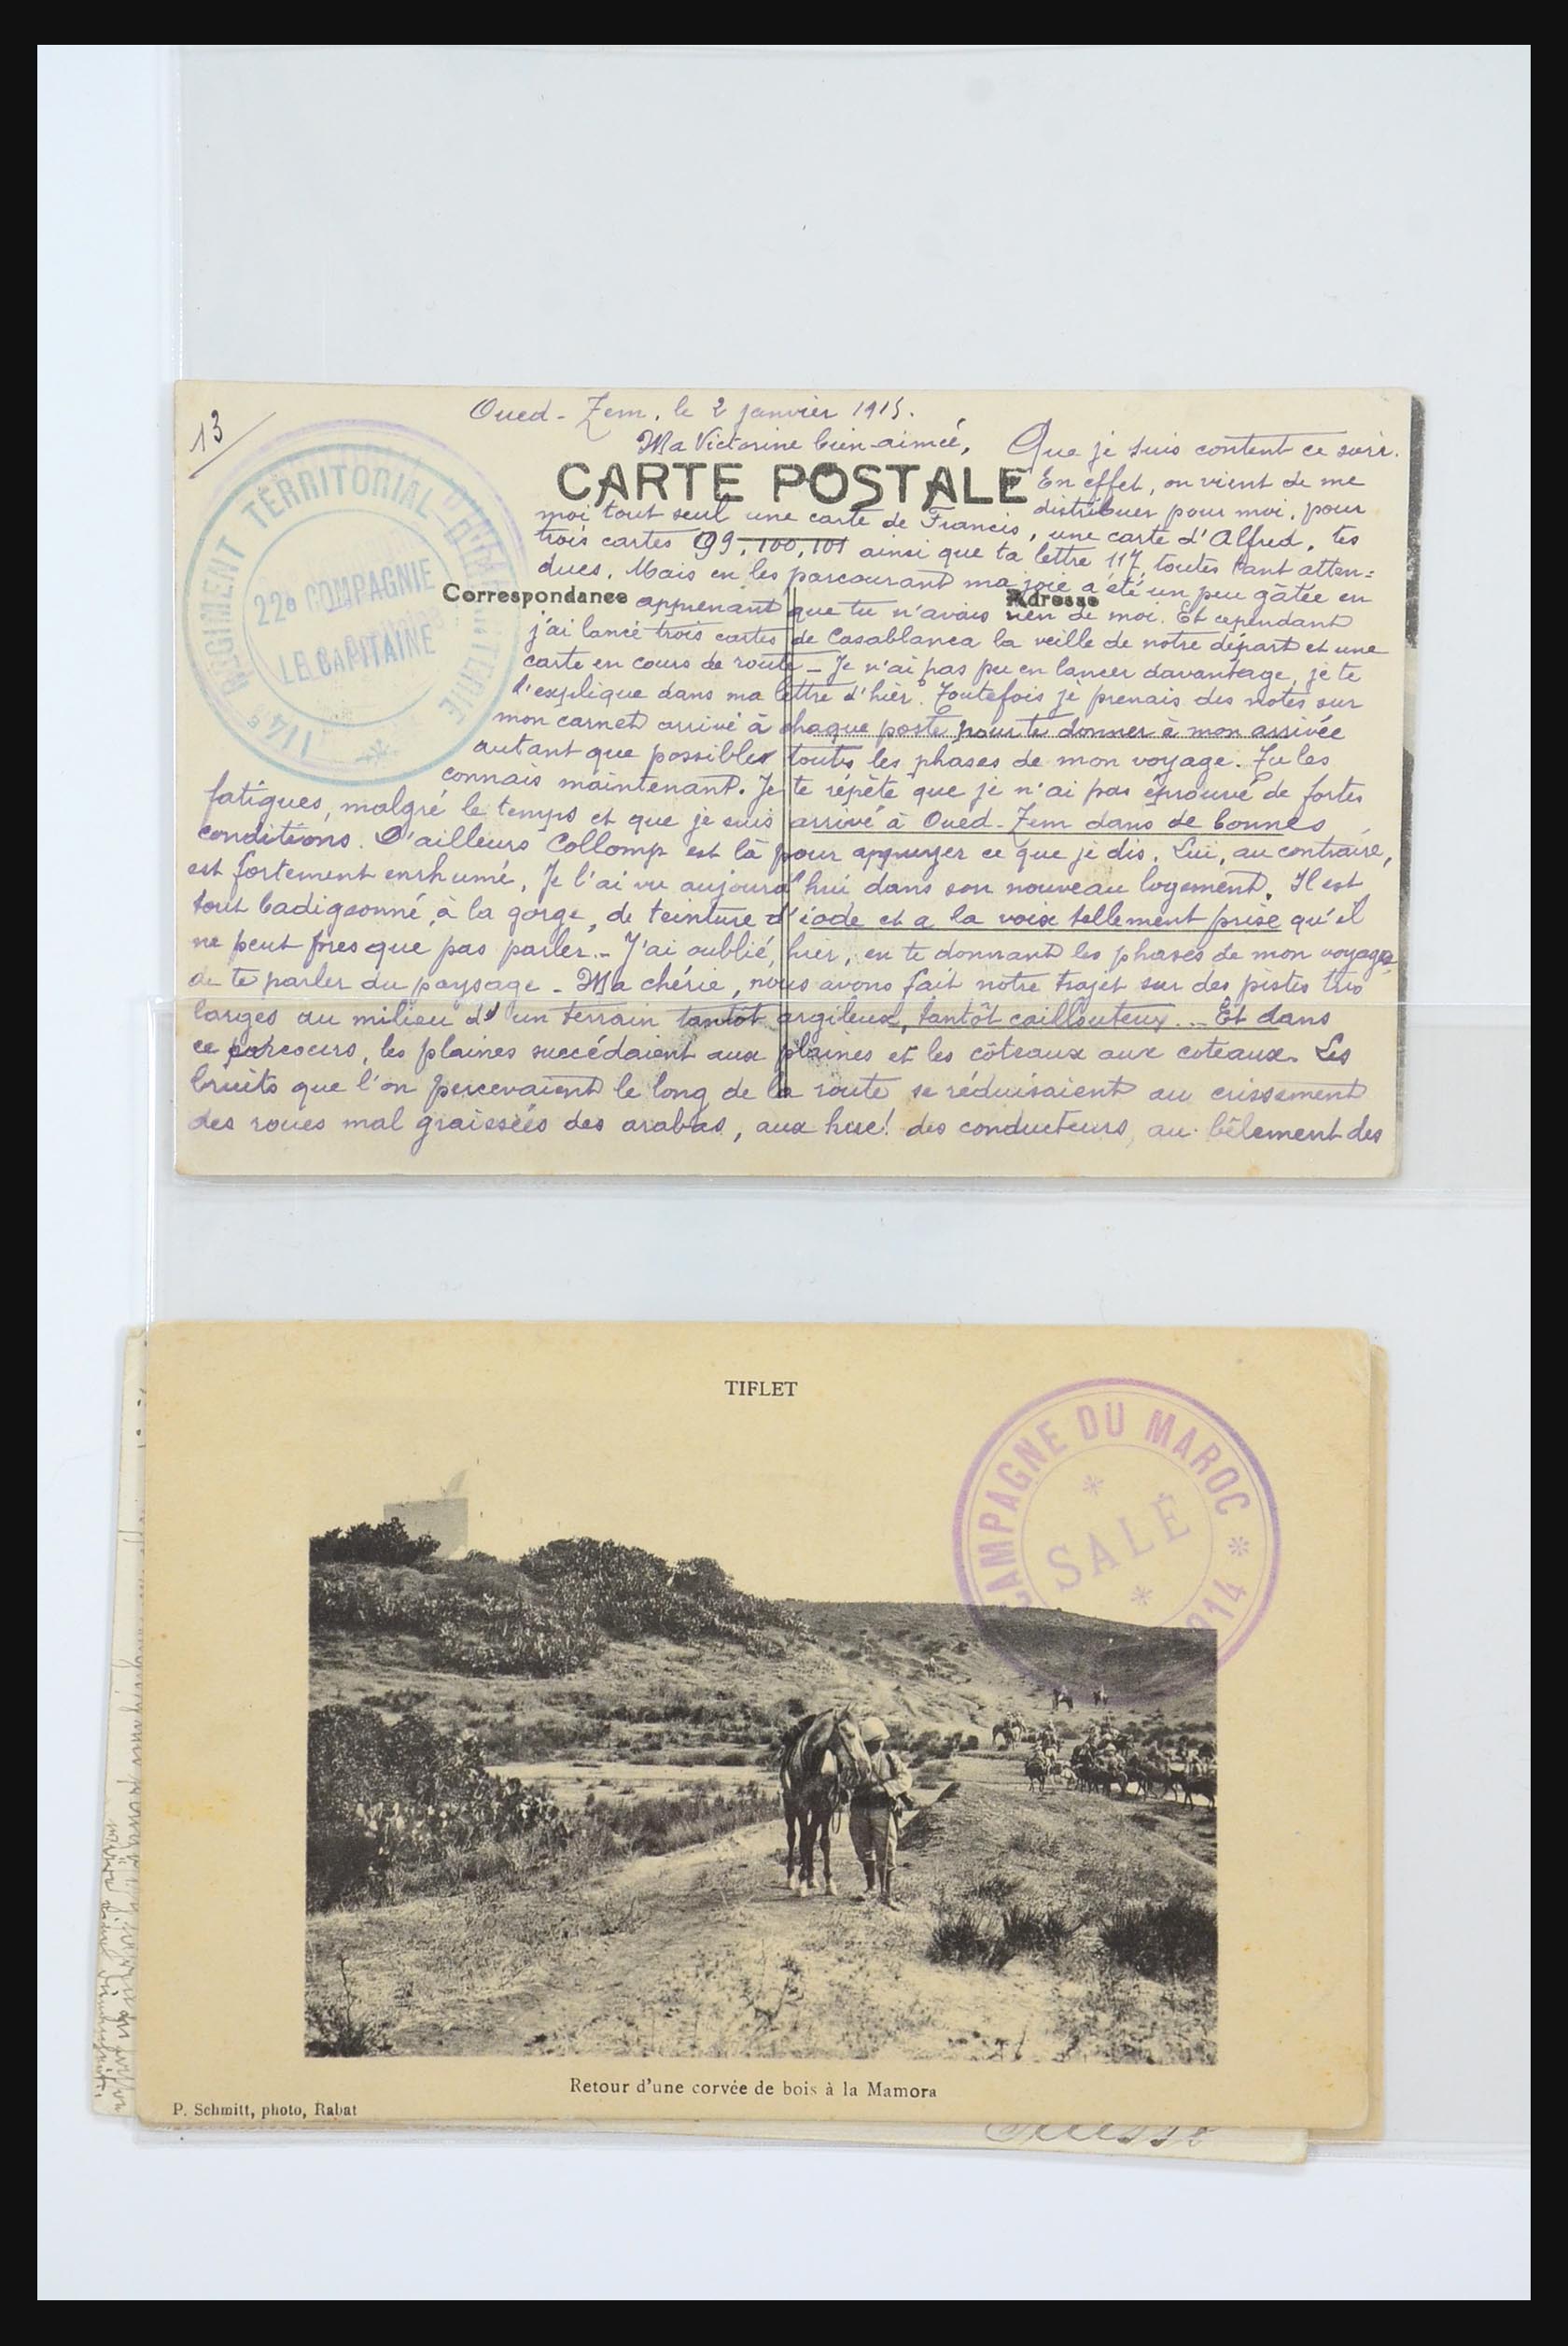 13
Oued-Zem, le 2 janvier 1915.
Ma Victorine bien-aimée, Que je suis content ce soir.
CARTE POSTALE
En effet, on vient de me
distribuer pour moi, pour
moi tout seul une carte de Francis, une carte d'Alfred, tes
trois cartes 99, 100, 101 ainsi que ta lettre 117, toutes tant atten=
dues. Mais en les parcourant ma joie a été un peu gâtée en
Correspondance
Adresse
apprenant que tu n'avais rien de moi. Et cependant
j'ai lancé trois cartes de Casablanca la veille de notre départ et une
carte en cours de route - Je n'ai pas pu en lancer davantage, je te
l'explique dans ma lettre d'hier. Toutefois je prenais des notes sur
mon carnet arrivé à chaque poste pour te donner à mon arrivée
autant que possible toutes les phases de mon voyage. Tu les
connais maintenant. Je te répète que je n'ai pas éprouvé de fortes
fatigues, malgré le temps et que je suis arrivé à Oued-Zem dans de bonnes
conditions. D'ailleurs Collomp est là pour appuyer ce que je dis. Lui, au contraire,
est fortement enrhumé. Je l'ai vu aujourd'hui dans son nouveau logement. Il est
tout badigeonné, à la gorge, de teinture d'iode et a la voix tellement prise qu'il
ne peut presque pas parler.- J'ai oublié, hier, en te donnant les phases de mon voyage,
de te parler du paysage - Ma chérie, nous avons fait notre trajet sur des pistes très
larges au milieu d'un terrain tantôt argileux, tantôt caillouteux... Et dans
ce parcours, les plaines succédaient aux plaines et les côteaux aux coteaux. Les
bruits que l'on percevaient le long de la route se réduisaient au crissement
des roues mal graissées des arabas, aux hue! des conducteurs, au bêlement des
114e REGIMENT TERRITORIAL D'INFANTERIE
22e COMPAGNIE
LE CAPITAINE
TIFLET
CAMPAGNE DU MAROC
SALÉ
914
Retour d'une corvée de bois à la Mamora
P. Schmitt, photo, Rabat